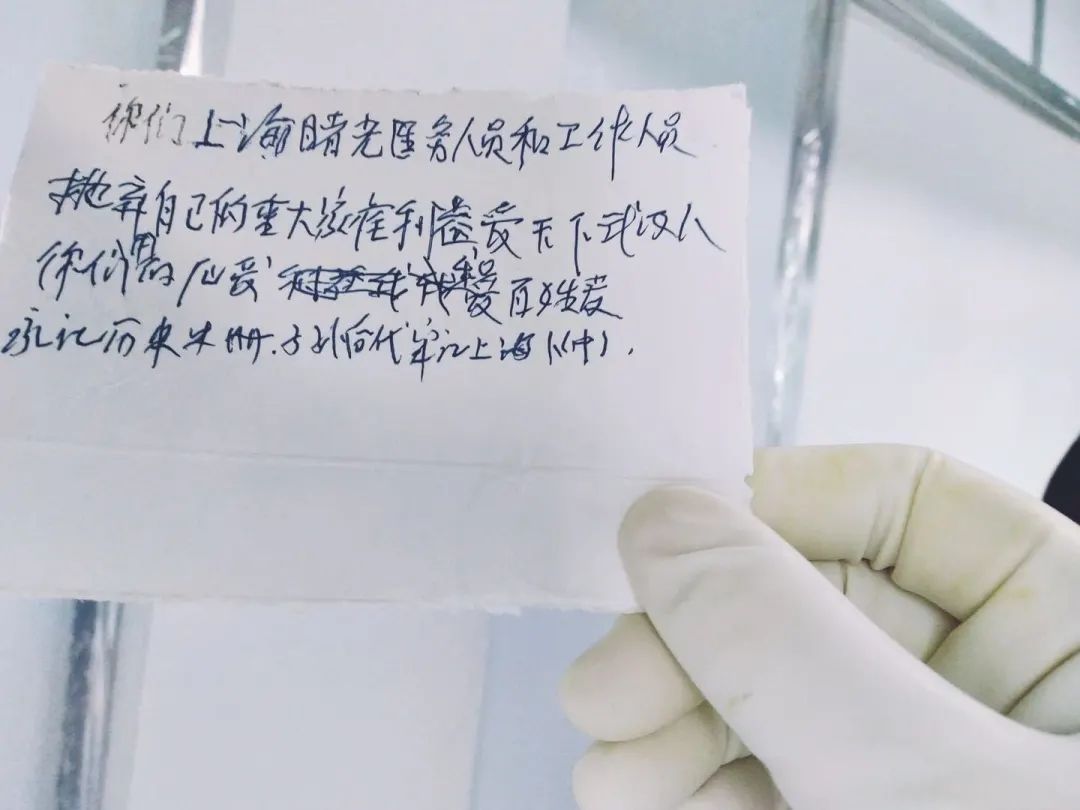 你们上海曙光医务人员和工作人员
抛弃自己的重大家庭利益,爱天下武汉人
你们最应受百姓爱
永记历史史册.子孙后代牢记上海